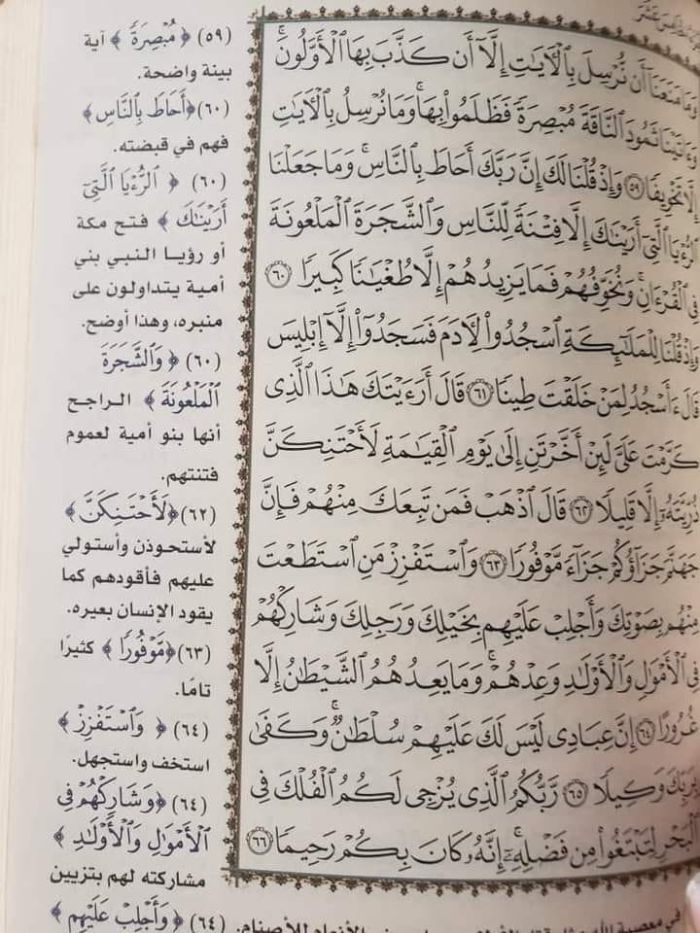 وَمَا مَنَعَنَآ أَن نُّرْسِلَ بِٱلْـَٔايَٰتِ إِلَّآ أَن كَذَّبَ بِهَا ٱلْأَوَّلُونَۚ
وَءَاتَيْنَا ثَمُودَ ٱلنَّاقَةَ مُبْصِرَةً فَظَلَمُوا۟ بِهَاۚ وَمَا نُرْسِلُ بِٱلْـَٔايَٰتِ
إِلَّا تَخْوِيفًا ٥٩ وَإِذْ قُلْنَا لَكَ إِنَّ رَبَّكَ أَحَاطَ بِٱلنَّاسِۚ وَمَا جَعَلْنَا
ٱلرُّءْيَا ٱلَّتِىٓ أَرَيْنَٰكَ إِلَّا فِتْنَةً لِّلنَّاسِ وَٱلشَّجَرَةَ ٱلْمَلْعُونَةَ
فِى ٱلْقُرْءَانِۚ وَنُخَوِّفُهُمْ فَمَا يَزِيدُهُمْ إِلَّا طُغْيَٰنًا كَبِيرًا ٦٠
وَإِذْ قُلْنَا لِلْمَلَٰٓئِكَةِ ٱسْجُدُوا۟ لِـَٔادَمَ فَسَجَدُوٓا۟ إِلَّآ إِبْلِيسَ
قَالَ ءَأَسْجُدُ لِمَنْ خَلَقْتَ طِينًا ٦١ قَالَ أَرَءَيْتَكَ هَٰذَا ٱلَّذِى
كَرَّمْتَ عَلَىَّ لَئِنْ أَخَّرْتَنِ إِلَىٰ يَوْمِ ٱلْقِيَٰمَةِ لَأَحْتَنِكَنَّ
ذُرِّيَّتَهُۥٓ إِلَّا قَلِيلًا ٦٢ قَالَ ٱذْهَبْ فَمَن تَبِعَكَ مِنْهُمْ فَإِنَّ
جَهَنَّمَ جَزَآؤُكُمْ جَزَآءً مَّوْفُورًا ٦٣ وَٱسْتَفْزِزْ مَنِ ٱسْتَطَعْتَ
مِنْهُم بِصَوْتِكَ وَأَجْلِبْ عَلَيْهِم بِخَيْلِكَ وَرَجِلِكَ وَشَارِكْهُمْ
فِى ٱلْأَمْوَٰلِ وَٱلْأَوْلَٰدِ وَعِدْهُمْۚ وَمَا يَعِدُهُمُ ٱلشَّيْطَٰنُ إِلَّا
غُرُورًا ٦٤ إِنَّ عِبَادِى لَيْسَ لَكَ عَلَيْهِمْ سُلْطَٰنٌۚ وَكَفَىٰ
بِرَبِّكَ وَكِيلًا ٦٥ رَّبُّكُمُ ٱلَّذِى يُزْجِى لَكُمُ ٱلْفُلْكَ فِى
ٱلْبَحْرِ لِتَبْتَغُوا۟ مِن فَضْلِهِۦٓۚ إِنَّهُۥ كَانَ بِكُمْ رَحِيمًا ٦٦
(٥٩) ﴿مُبْصِرَةً﴾ آية
بينة واضحة.
(٦٠) ﴿أَحَاطَ بِٱلنَّاسِ﴾
فهم في قبضته.
(٦٠) ﴿ٱلرُّءْيَا ٱلَّتِىٓ
أَرَيْنَٰكَ﴾ فتح مكة
أو رؤيا النبي بني
أمية يتداولون على
منبره، وهذا أوضح.
(٦٠) ﴿وَٱلشَّجَرَةَ
ٱلْمَلْعُونَةَ﴾ الراجح
أنها بنو أمية لعموم
فتنتهم.
(٦٢) ﴿لَأَحْتَنِكَنَّ﴾
لأستحوذن وأستولي
عليهم فأقودهم كما
يقود الإنسان بعيره.
(٦٣) ﴿مَّوْفُورًا﴾ كثيرًا
تامًا.
(٦٤) ﴿وَٱسْتَفْزِزْ﴾
استخف واستجهل.
(٦٤) ﴿وَشَارِكْهُمْ فِى
ٱلْأَمْوَٰلِ وَٱلْأَوْلَٰدِ﴾
مشاركته لهم بتزيين
(٦٤) ﴿وَأَجْلِبْ عَلَيْهِم﴾